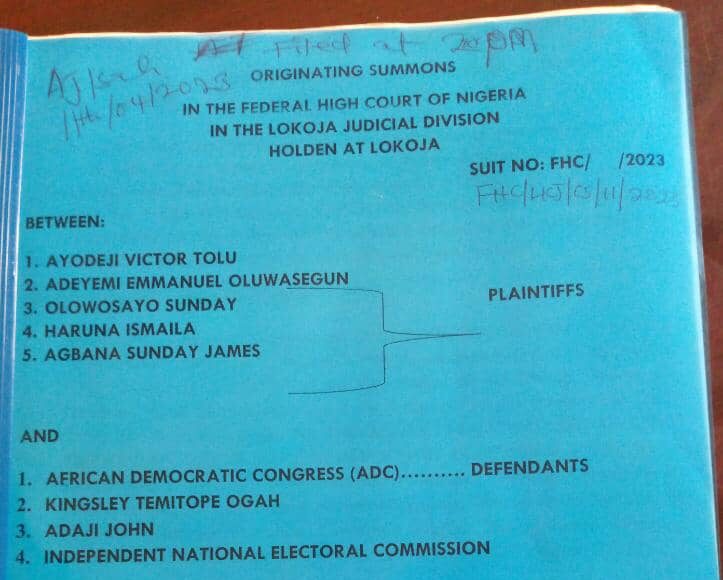 Filed at 2:00PM
ORIGINATING SUMMONS
/04/2023
IN THE FEDERAL HIGH COURT OF NIGERIA
IN THE LOKOJA JUDICIAL DIVISION
HOLDEN AT LOKOJA
SUIT NO: FHC/ /2023
FHC/LKJ/CS/11/2023
BETWEEN:
1. AYODEJI VICTOR TOLU
2. ADEYEMI EMMANUEL OLUWASEGUN
3. OLOWOSAYO SUNDAY
PLAINTIFFS
4. HARUNA ISMAILA
5. AGBANA SUNDAY JAMES
AND
1. AFRICAN DEMOCRATIC CONGRESS (ADC).......... DEFENDANTS
2. KINGSLEY TEMITOPE OGAH
3. ADAJI JOHN
4. INDEPENDENT NATIONAL ELECTORAL COMMISSION